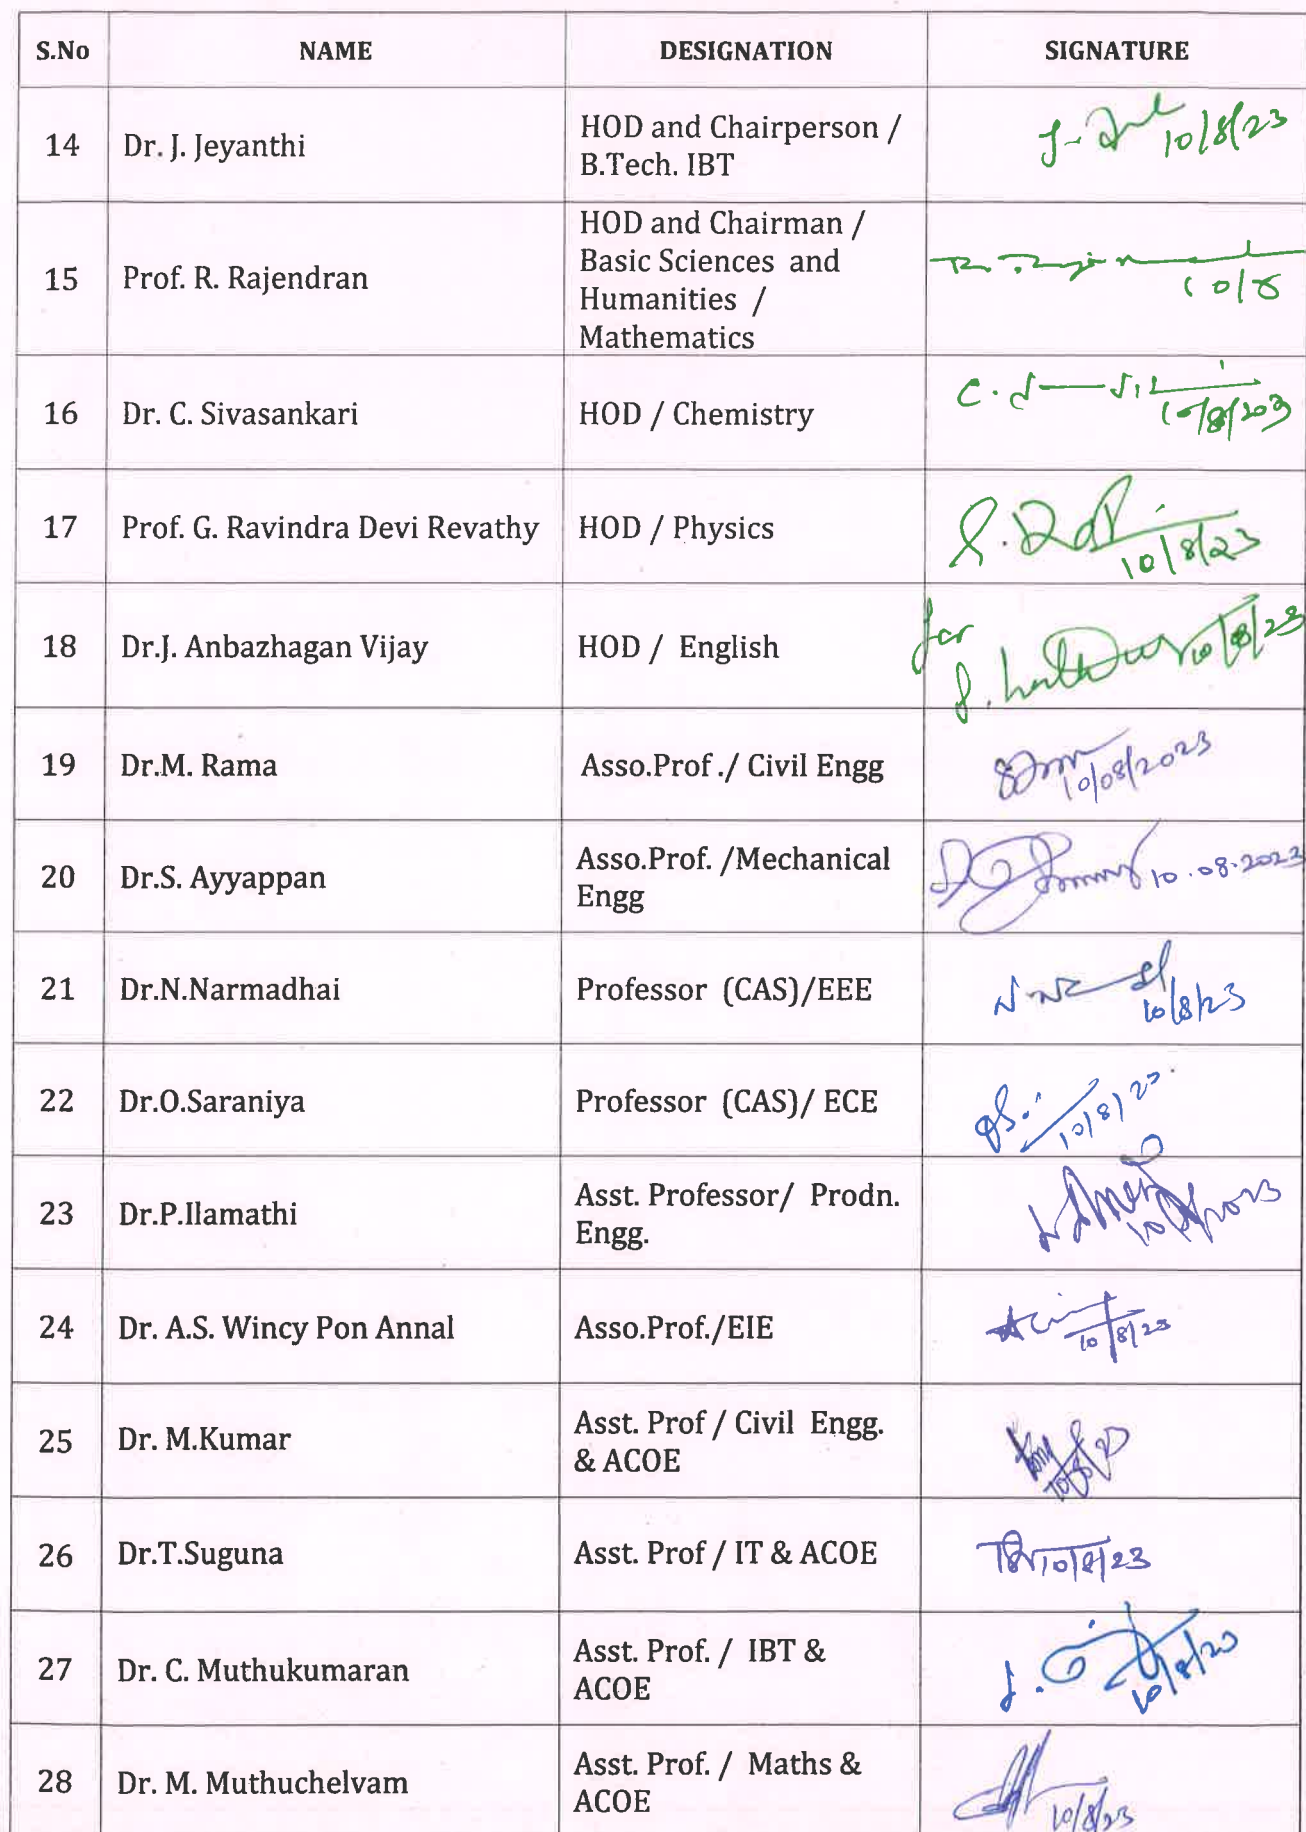 S.No NAME DESIGNATION SIGNATURE
14 Dr. J. Jeyanthi HOD and Chairperson / 10/8/23
B.Tech. IBT
HOD and Chairman /
15 Prof. R. Rajendran Basic Sciences and 10/8
Humanities /
Mathematics
16 Dr. C. Sivasankari HOD / Chemistry C.
17 Prof. G. Ravindra Devi Revathy HOD / Physics 10/8/23
18 Dr.J. Anbazhagan Vijay HOD / English for 10/8/23
19 Dr.M. Rama Asso.Prof./ Civil Engg 10/08/2023
20 Dr.S. Ayyappan Asso.Prof. /Mechanical 10.08.2023
Engg
21 Dr.N.Narmadhai Professor (CAS)/EEE 10/8/23
22 Dr.O.Saraniya Professor (CAS)/ ECE 10/8/23
23 Dr.P.Ilamathi Asst. Professor/ Prodn.
Engg.
24 Dr. A.S. Wincy Pon Annal Asso.Prof./EIE 10/8/23
25 Dr. M.Kumar Asst. Prof / Civil Engg. 10/8/23
& ACOE
26 Dr.T.Suguna Asst. Prof / IT & ACOE 10/8/23
27 Dr. C. Muthukumaran Asst. Prof. / IBT & 10/8/23
ACOE
28 Dr. M. Muthuchelvam Asst. Prof. / Maths & 10/8/23
ACOE